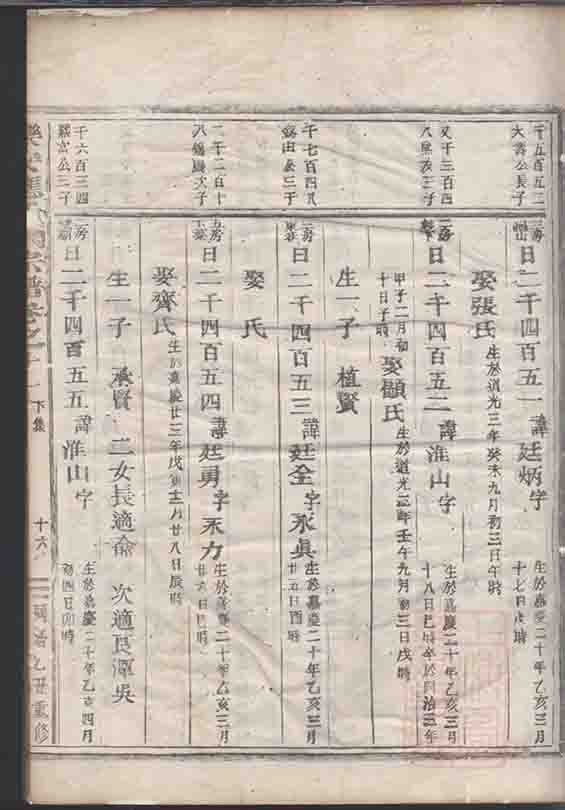 千五百五二
大壽公長子
二房
日二千四百五一諱廷炳字
生於嘉慶二十年乙亥三月
十七日 時
娶張氏
生於道光三年癸未九月初三日午時
又千三百四
八 公子
二房
日二千四百五二諱淮山字
生於嘉慶二十年乙亥三月
十八日巳時卒於同治三年
甲子二月初
十日子時
娶顧氏
生於道光二年壬午九月初三日戌時
生一子植賢
千七百四
公三子
二房
日二千四百五三諱廷全字永眞
生於嘉慶二十年乙亥三月
廿五日酉時
娶 氏
二千二百十
八 次子
五房
日二千四百五四諱廷勇字永力
生於嘉慶二十年乙亥三月
廿六日巳時
娶齊氏
生於嘉慶廿三年戊寅十二月廿八日辰時
生一子承賢二女長適俞次適艮潭吳
千六百三四
富公三子
二房
日二千四百五五諱淮山字
生於嘉慶二十年乙亥四月
初四日卯時
宗譜卷之十
下集
十六
乙丑重修